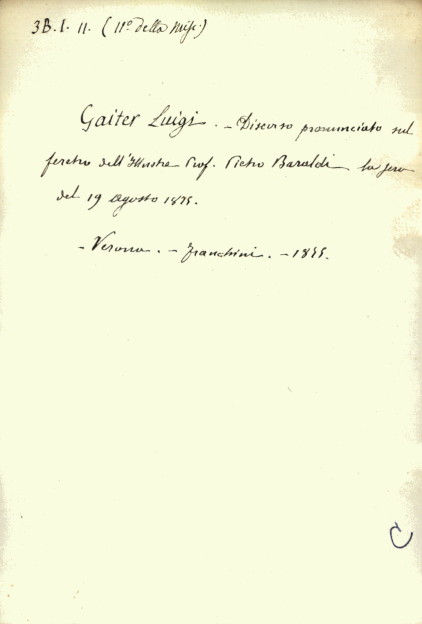 3B.I. 11. (11º della Misc.)
Gaiter Luigi. - Discorso pronunciato sul
feretro dell'Illustre Prof. Pietro Baraldi la sera
del 19 agosto 1875.
- Verona. - Franchini. - 1875.
C